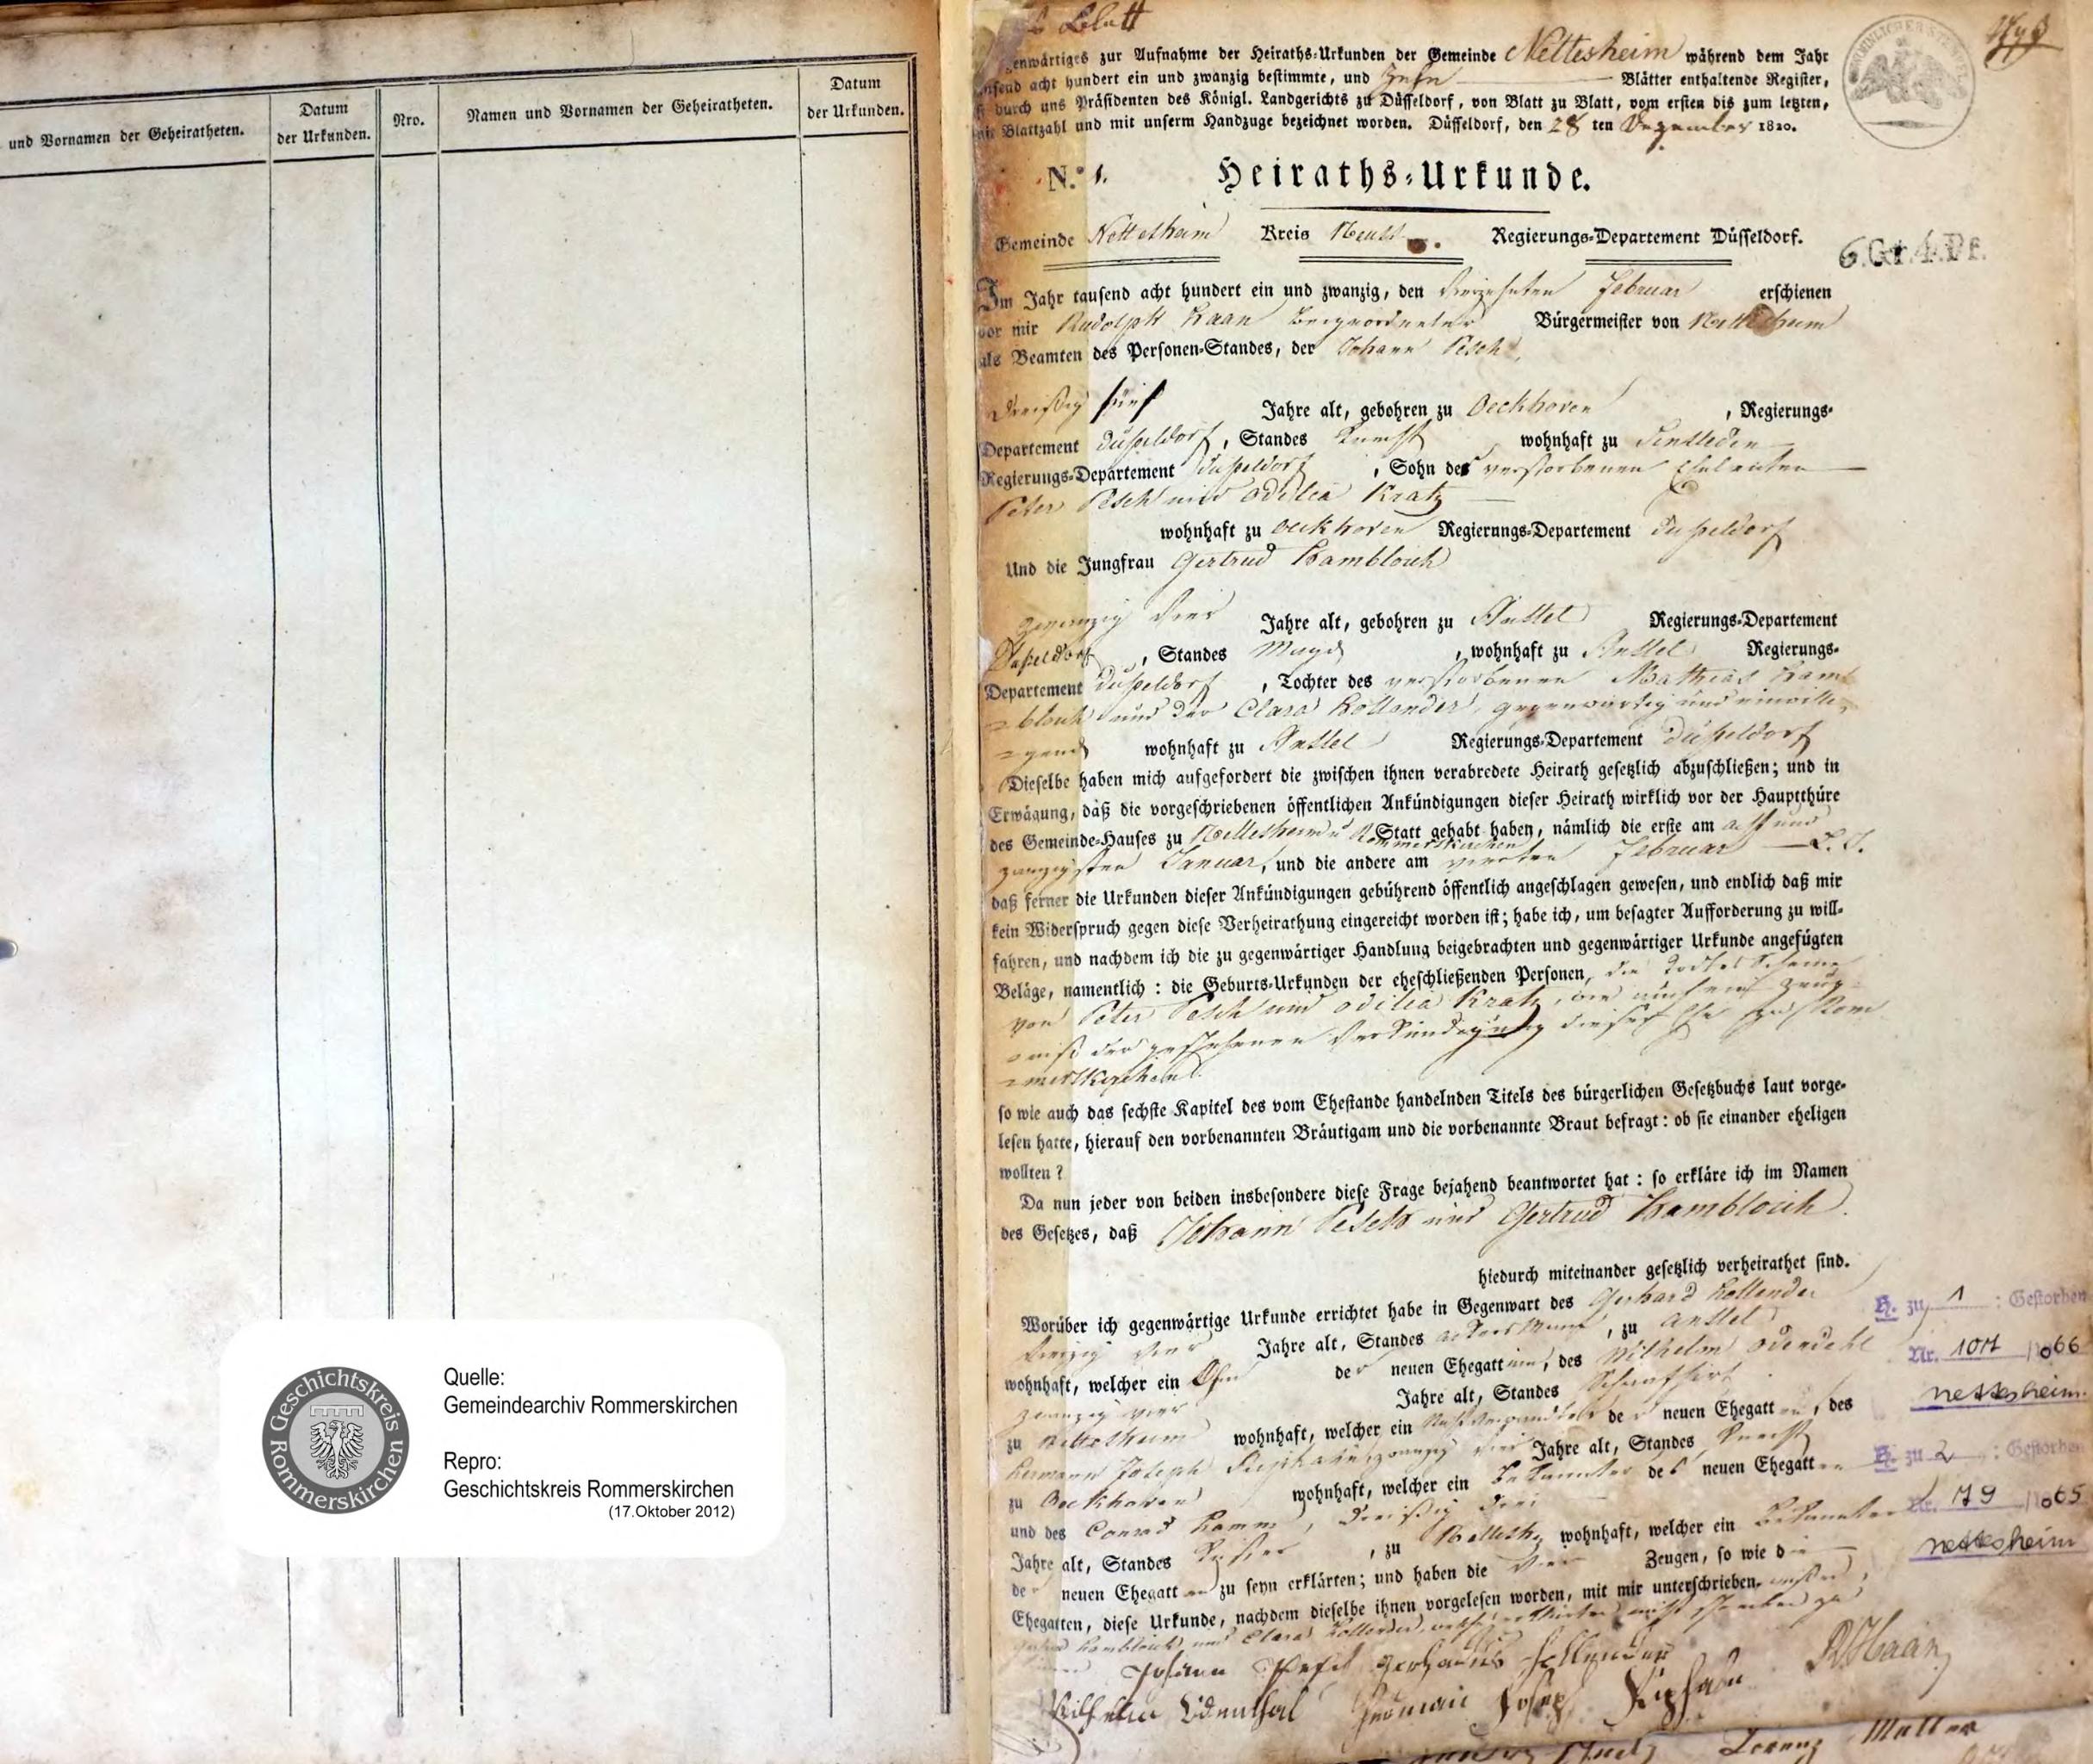 und Vornamen der Geheiratheten.
Datum
der Urkunden.
Nro.
Namen und Vornamen der Geheiratheten.
Datum
der Urkunden.
Quelle:
Gemeindearchiv Rommerskirchen
Repro:
Geschichtskreis Rommerskirchen
(17.Oktober 2012)
Geschichtskreis
Rommerskirchen
Blatt
zur Aufnahme der Heiraths-Urkunden der Gemeinde Nettesheim während dem Jahr
acht hundert ein und zwanzig bestimmte, und Blätter enthaltende Register,
durch uns Präsidenten des Königl. Landgerichts zu Düsseldorf, von Blatt zu Blatt, vom ersten bis zum letzten,
Blattzahl und mit unserm Handzuge bezeichnet worden. Düsseldorf, den 28 ten Dezember 1820.
N.º 1. Heiraths-Urkunde.
Gemeinde Nettesheim Kreis Neuss Regierungs-Departement Düsseldorf.
6.Gr.4.Pf.
Im Jahr tausend acht hundert ein und zwanzig, den vierzehnten Februar erschienen
vor mir Rudolph Haan Beigeordneter Bürgermeister von Nettesheim
als Beamten des Personen-Standes, der Johann Pesch
dreißig fünf Jahre alt, gebohren zu Oeckhoven, Regierungs-
Departement Düsseldorf, Standes Knecht wohnhaft zu
Regierungs-Departement Düsseldorf, Sohn der verstorbenen Eheleuten
Peter Pesch und Odilia Kratz
wohnhaft zu Oeckhoven Regierungs-Departement Düsseldorf
Und die Jungfrau Gertrud Hambloch
zwanzig vier Jahre alt, gebohren zu Anstel Regierungs-Departement
Düsseldorf, Standes Magd, wohnhaft zu Anstel Regierungs-
Departement Düsseldorf, Tochter des verstorbenen Mathias Ham-
bloch und der Clara Hollender, gegenwärtig und einwilli-
gend wohnhaft zu Anstel Regierungs-Departement Düsseldorf
Dieselbe haben mich aufgefordert die zwischen ihnen verabredete Heirath gesetzlich abzuschließen; und in
Erwägung, daß die vorgeschriebenen öffentlichen Ankündigungen dieser Heirath wirklich vor der Hauptthüre
des Gemeinde-Hauses zu Nettesheim u Rommerskirchen Statt gehabt haben, nämlich die erste am acht und
zwanzigsten Januar, und die andere am vierten Februar L. J.
daß ferner die Urkunden dieser Ankündigungen gebührend öffentlich angeschlagen gewesen, und endlich daß mir
kein Widerspruch gegen diese Verheirathung eingereicht worden ist; habe ich, um besagter Aufforderung zu will-
fahren, und nachdem ich die zu gegenwärtiger Handlung beigebrachten und gegenwärtiger Urkunde angefügten
Beläge, namentlich: die Geburts-Urkunden der eheschließenden Personen, die Todtes Scheine
von Peter Pesch und Odilia Kratz, wie auch ein Zeug-
niß der geschehenen Verkündigung dieser Ehe zu Rom-
merskirchen.
so wie auch das sechste Kapitel des vom Ehestande handelnden Titels des bürgerlichen Gesetzbuchs laut vorge-
lesen hatte, hierauf den vorbenannten Bräutigam und die vorbenannte Braut befragt: ob sie einander eheligen
wollten?
Da nun jeder von beiden insbesondere diese Frage bejahend beantwortet hat: so erkläre ich im Namen
des Gesetzes, daß Johann Pesch und Gertrud Hambloch
hiedurch miteinander gesetzlich verheirathet sind.
Worüber ich gegenwärtige Urkunde errichtet habe in Gegenwart des Gerhard Hollender
vierzig vier Jahre alt, Standes Ackersmann, zu Anstel
wohnhaft, welcher ein Ohm der neuen Ehegattinn, des Wilhelm Odendahl
zwanzig vier Jahre alt, Standes
zu Nettesheim wohnhaft, welcher ein der neuen Ehegatten, des
Hermann Joseph zwanzig Jahre alt, Standes Knecht
zu Oeckhoven wohnhaft, welcher ein Bekannter des neuen Ehegatten
und des Conrad Hamm, dreißig drei
Jahre alt, Standes Küster, zu Nettesh. wohnhaft, welcher ein Bekannter
der neuen Ehegatten zu seyn erklärten; und haben die vier Zeugen, so wie die
Ehegatten, diese Urkunde, nachdem dieselbe ihnen vorgelesen worden, mit mir unterschrieben. außer
Hambloch und Clara Hollender, nicht schreiben zu
Johann Pesch Gerhardus Hollender RHaan
Wilhelm Odenthal Herman Josep
Lorenz Müller
H. zu 1 : Gestorben
Nr. 107 66
nettesheim
H. zu 2 : Gestorben
Nr. 79 65
nettesheim